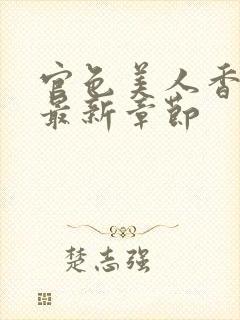 官色美人香
最新章节
楚志强